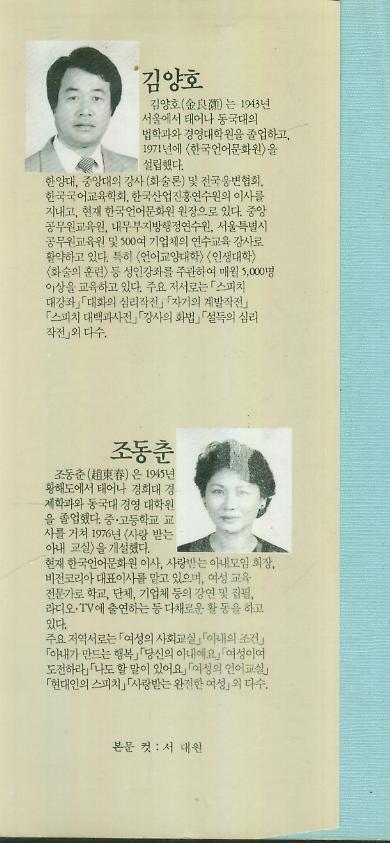 김양호
김양호(金良灝)는 1943년
서울에서 태어나 동국대의
법학과와 경영대학원을 졸업하고,
1971년에 〈한국언어문화원〉을
설립했다.
한양대, 중앙대의 강사(화술론) 및 전국웅변협회,
한국국어교육학회, 한국산업진흥연수원의 이사를
지내고, 현재 한국언어문화원 원장으로 있다. 중앙
공무원교육원, 내무부지방행정연수원, 서울특별시
공무원교육원 및 500여 기업체의 연수교육 강사로
활약하고 있다. 특히 〈언어교양대학〉 〈인생대학〉
〈화술의 훈련〉 등 성인강좌를 주관하여 매월 5,000명
이상을 교육하고 있다. 주요 저서로는 「스피치
대강좌」 「대화의 심리작전」 「자기의 계발작전」
「스피치 대백과사전」 「강사의 화법」 「설득의 심리
작전」 외 다수.
조동춘
조동춘(趙東春)은 1945년
황해도에서 태어나 경희대 경
제학과와 동국대 경영 대학원
을 졸업했다. 중·고등학교 교
사를 거쳐 1976년 〈사랑 받는
아내 교실〉을 개설했다.
현재 한국언어문화원 이사, 사랑받는 아내모임 회장,
비전코리아 대표이사를 맡고 있으며, 여성 교육
전문가로 학교, 단체, 기업체 등의 강연 및 집필,
라디오·TV에 출연하는 등 다채로운 활동을 하고
있다.
주요 저역서로는 「여성의 사회교실」 「아내의 조건」
「아내가 만드는 행복」 「당신의 아내예요」 「여성이여
도전하라」 「나도 할 말이 있어요」 「여성의 언어교실」
「현대인의 스피치」 「사랑받는 완전한 여성」 외 다수.
본문 컷 : 서 대원